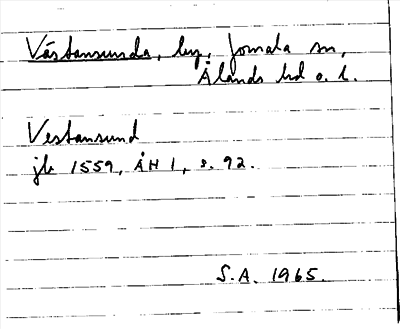 Västansunda, by, Jomala sn,
Ålands hd o. l.
Vestansund
jb 1559, ÅH 1, s. 92.
S.A. 1965.